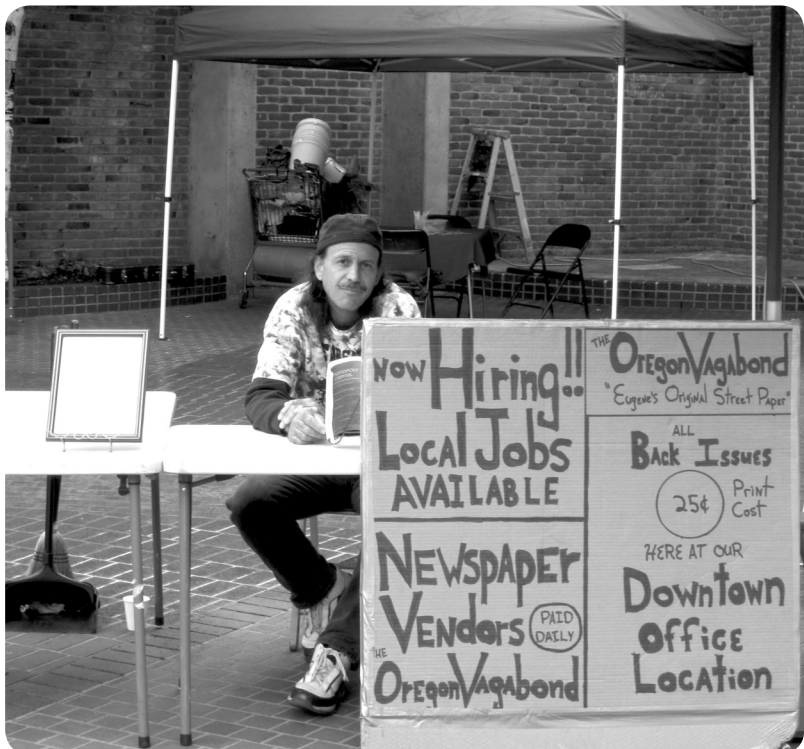 NOW Hiring!!
Local Jobs
AVAILABLE
NEWSPAPER
VENDORS
PAID
DAILY
THE
OREGONVAGABOND
THE OREGONVAGABOND
"Eugene's Original Street Paper"
ALL
BACK ISSUES
25¢
Print
Cost
HERE AT OUR
DOWNTOWN
OFFICE
LOCATION